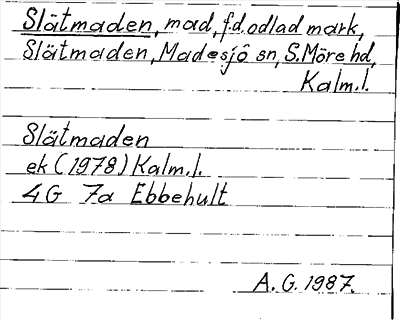 Slätmaden, mad, f.d. odlad mark,
Slätmaden, Madesjö sn, S. Möre hd,
Kalm.l.
Slätmaden
ek (1978) Kalm.l.
4G 7a Ebbehult
A.G. 1987.